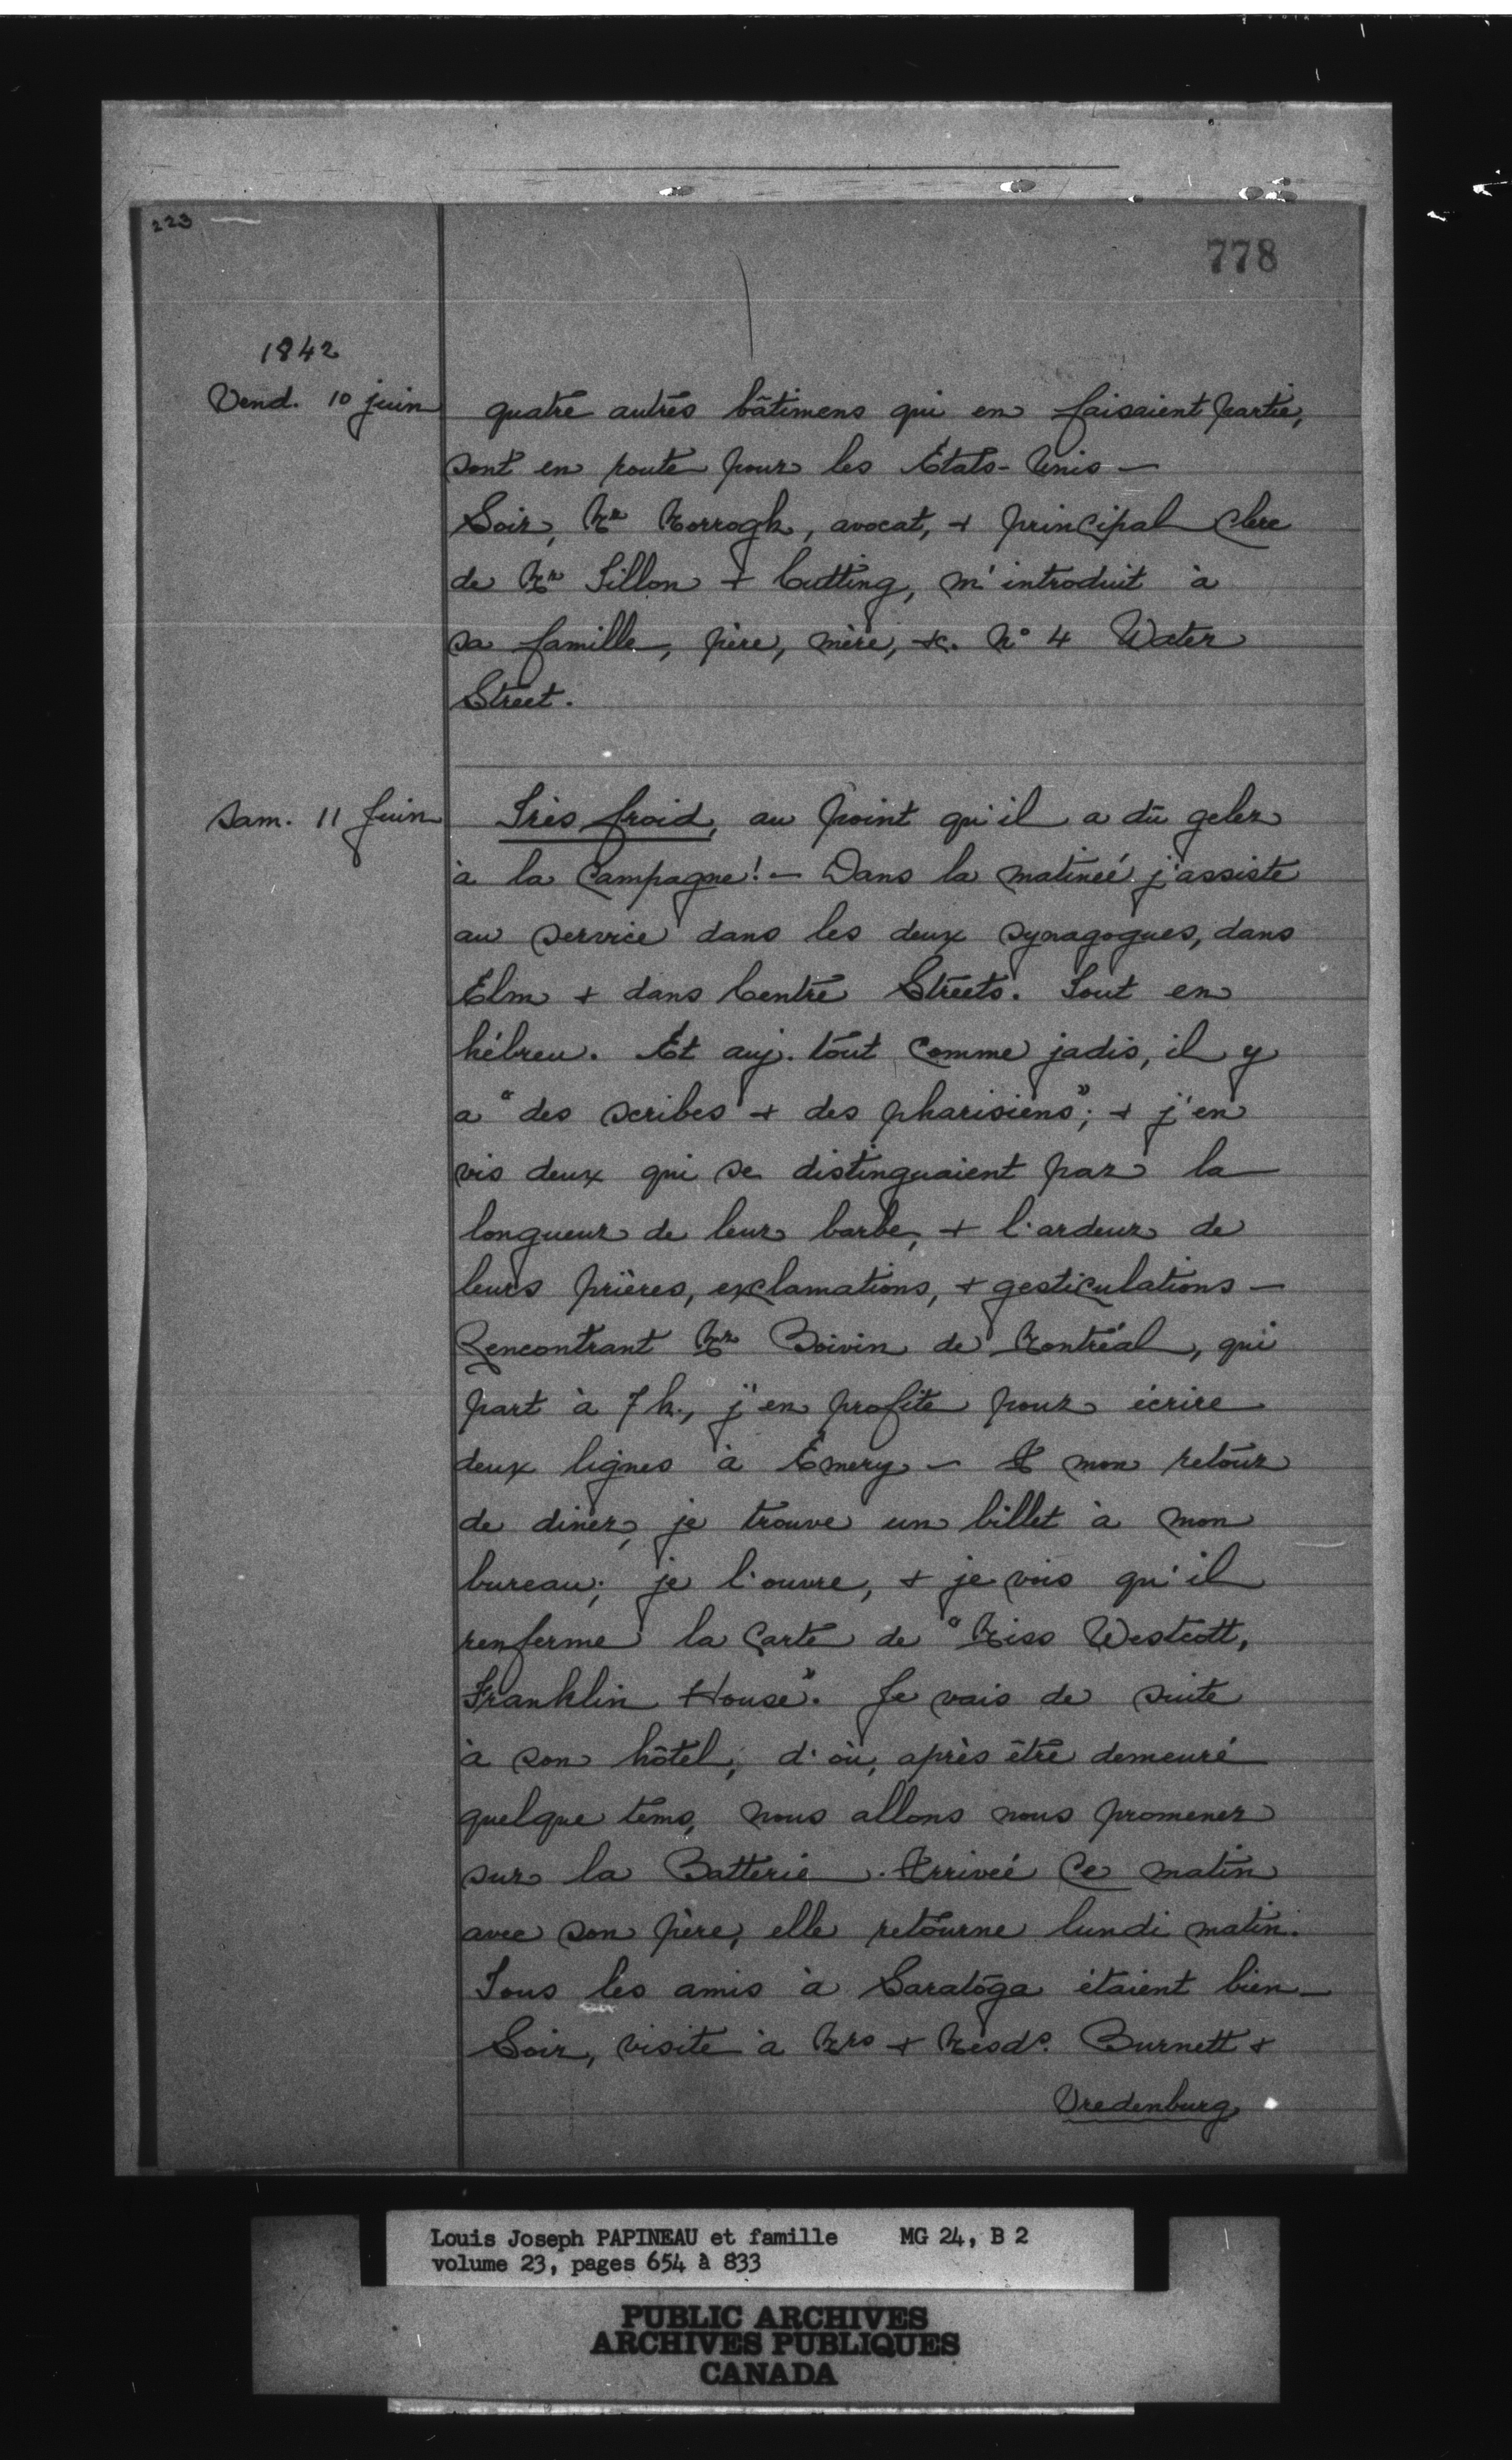 223
778
1842
Vend. 10 juin
quatre autres bâtimens qui en faisaient partie,
sont en route pour les États-Unis —
Soir, Mr Morrogh, avocat, + principal clerc
de Mr Tillon + Cutting, m'introduit à
sa famille, père, mère, &c. No 4 Water
Street.
Sam. 11 Juin
Très froid, au point qu'il a dû geler
à la campagne! — Dans la matinée j'assiste
au service dans les deux synagogues, dans
Elm + dans Centre Streets. Tout en
hébreu. Et auj. tout comme jadis, il y
a "des scribes + des pharisiens"; + j'en
vis deux qui se distinguaient par la
longueur de leur barbe, + l'ardeur de
leurs prières, exclamations, + gesticulations —
Rencontrant Mr Boivin de Montréal, qui
part à 7 h., j'en profite pour écrire
deux lignes à Émery — A mon retour
de diner, je trouve un billet à mon
bureau; je l'ouvre, + je vois qu'il
renferme la carte de "Miss Westcott,
Franklin House". Je vais de suite
à son hôtel, d'où, après être demeuré
quelque tems, nous allons nous promener
sur la Batterie. Arrivée ce matin
avec son père, elle retourne lundi matin.
Tous les amis à Saratoga étaient bien —
Soir, visite à Mrs + Mesds. Burnett +
Vredenburg
Louis Joseph PAPINEAU et famille MG 24, B 2
volume 23, pages 654 à 833
PUBLIC ARCHIVES
ARCHIVES PUBLIQUES
CANADA